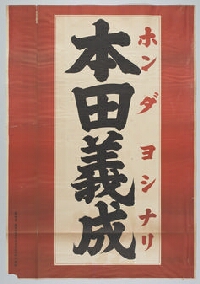 ホンダ ヨシナリ
本田義成